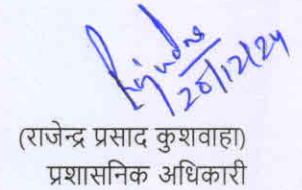 Rajendra
20/12/24
(राजेन्द्र प्रसाद कुशवाहा)
प्रशासनिक अधिकारी